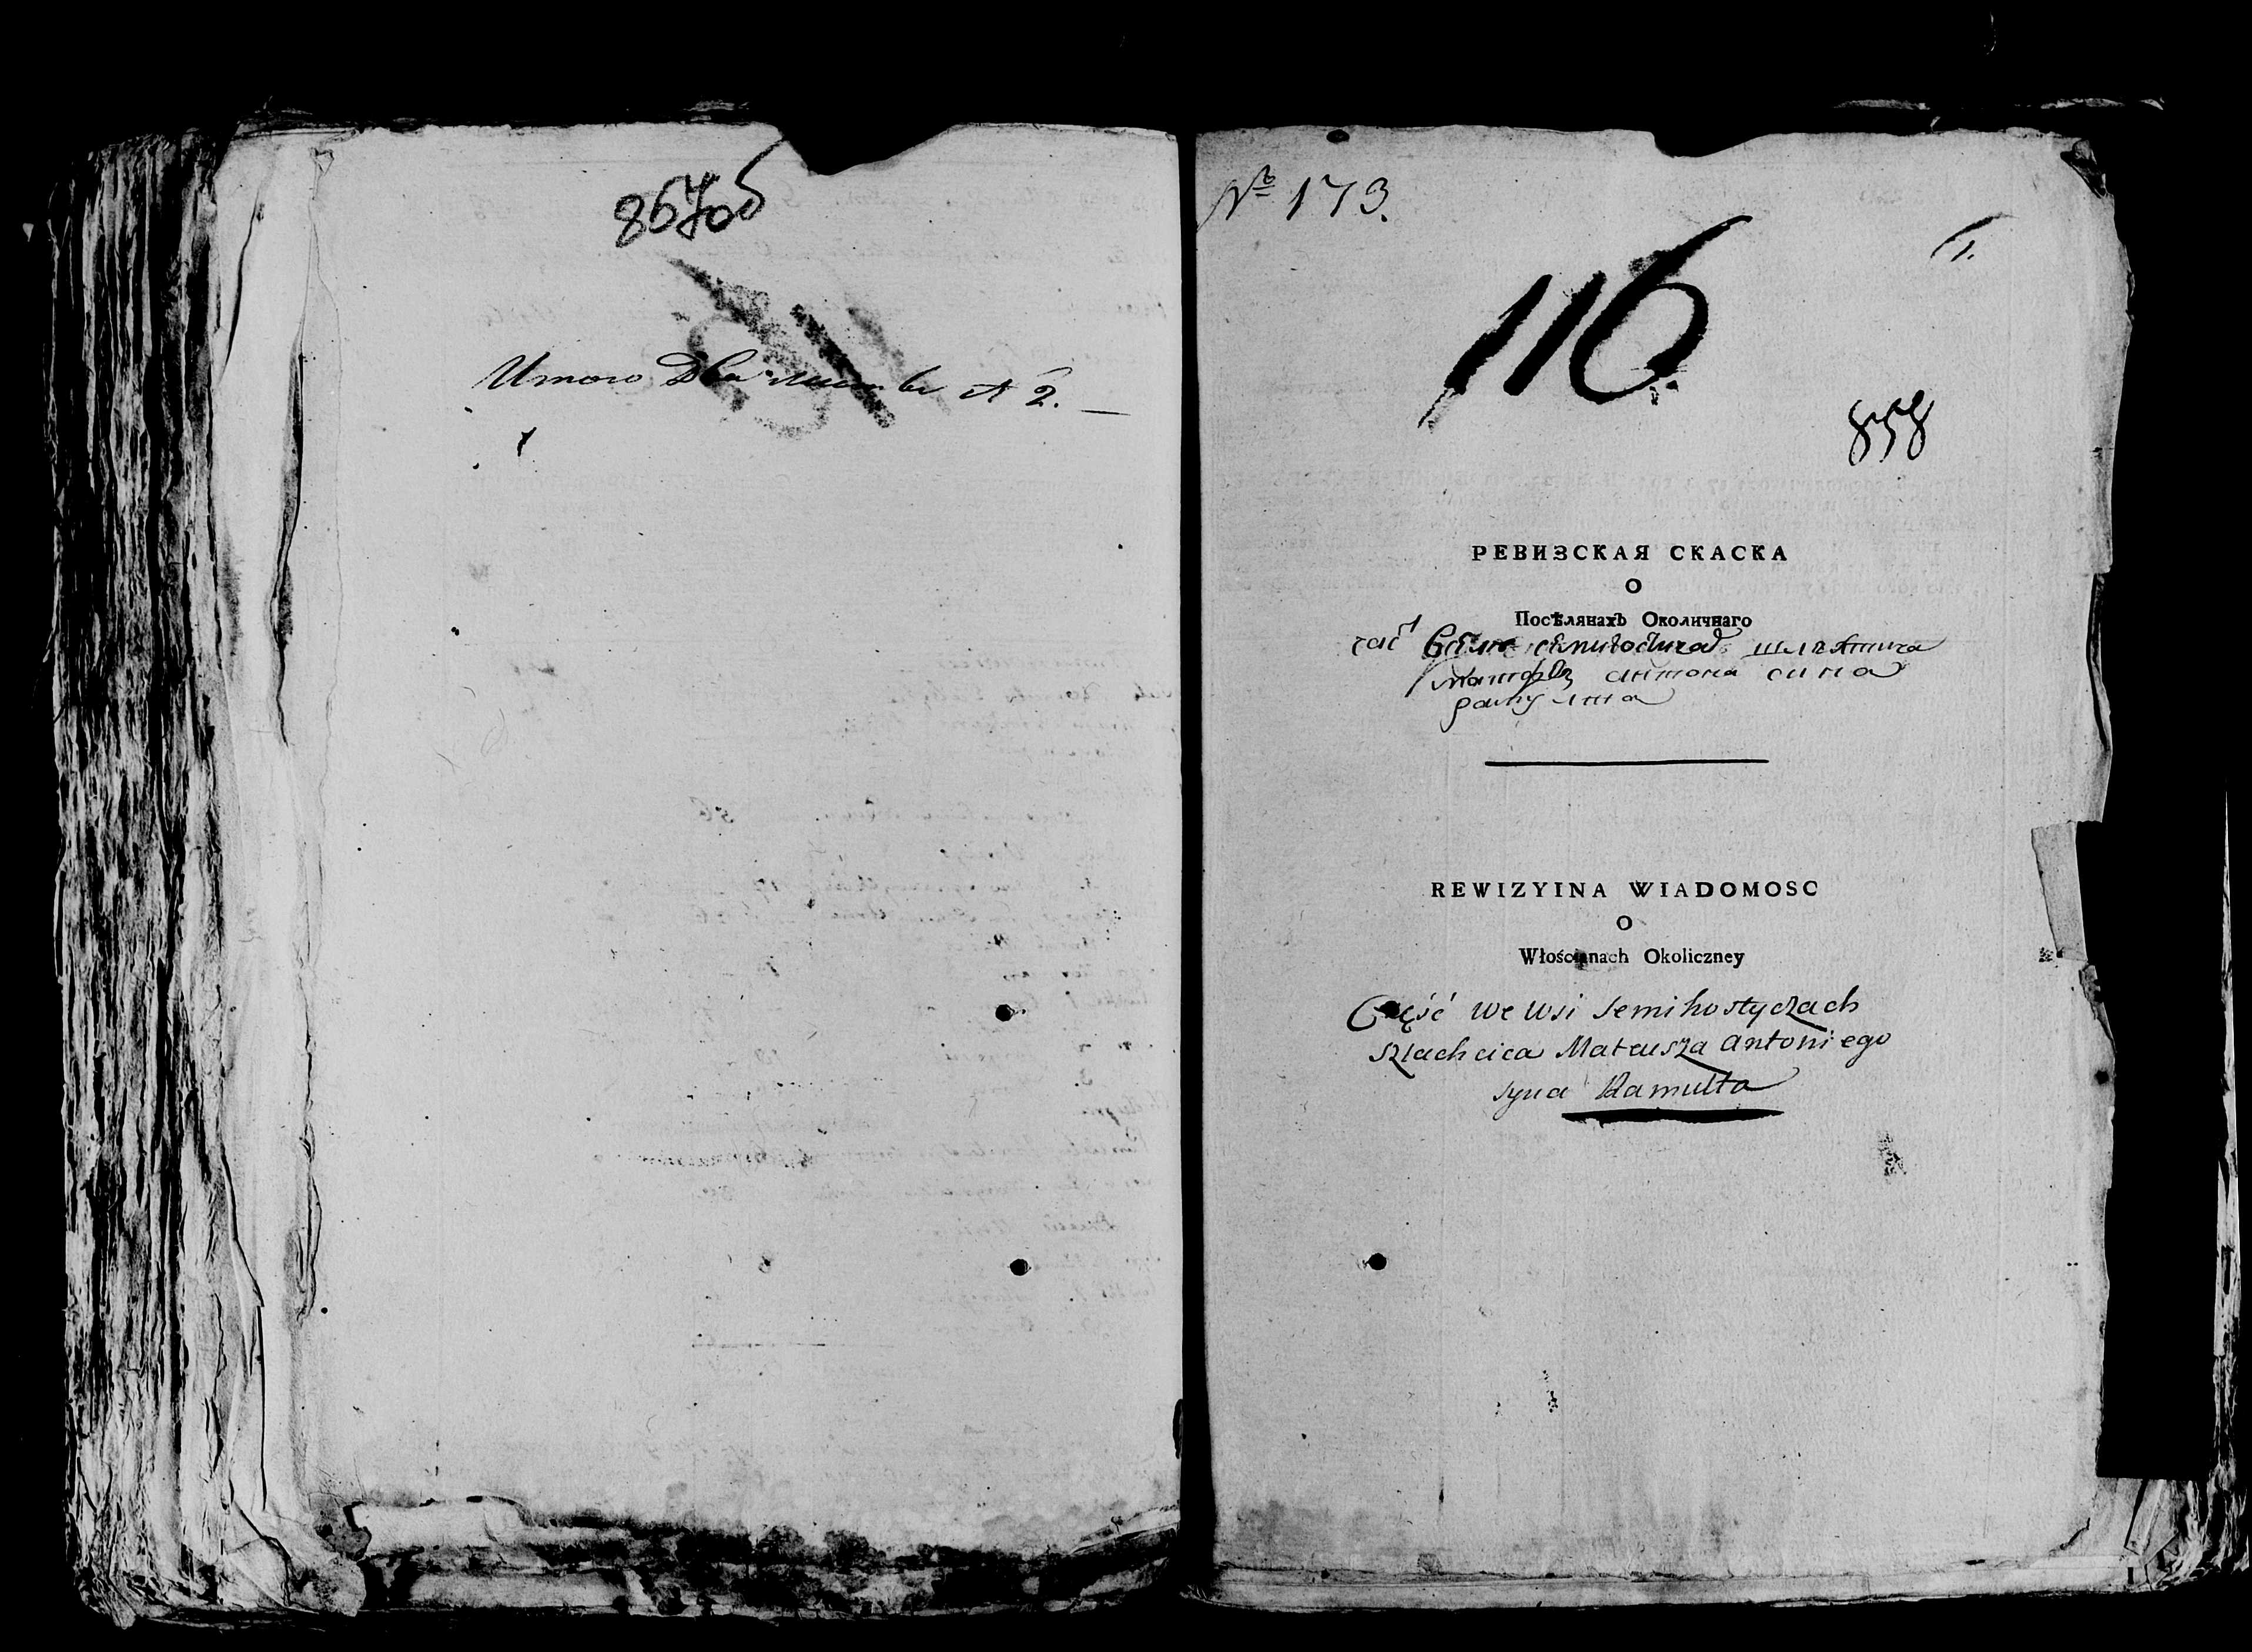 857об
Итого Два листа № 2. —
№ 173.
1.
116
858
РЕВИЗСКАЯ СКАСКА
О
Посѣлянахъ Околичнаго
шляхтича
антона сина
рамулта
REWIZYINA WIADOMOSC
O
Włościanach Okoliczney
Część we wsi Semihostyczach
szlachcica Mateusza Antoniego
syna Ramulta